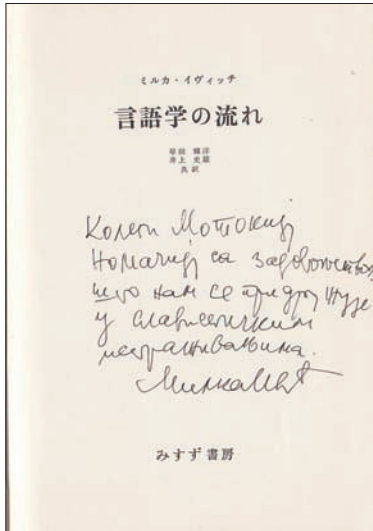 ミルカ・イヴィッチ
言語学の流れ
早田 輝洋
井上 史雄
共訳
Колеги Мотокију
Номаћију са задовољством
што нам се придружује
у славистичким
истраживањима.
Милка Ивић
みすず書房